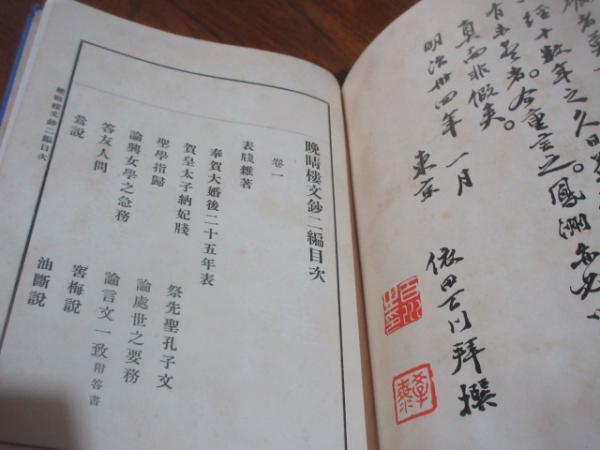 經十數年之久
有未
者。今重言之。鳳洲
真而非假矣。
明治卅四年一月
東京 依田百川拜撰
晩晴樓文鈔二編目次
卷一
表牋雜著
奉賀大婚後二十五年表
賀皇太子納妃牋
聖學指歸 祭先聖孔子文
論興女學之急務 論處世之要務
答友人問 論言文一致附答書
鶯說 窖梅說
油斷說
晩晴樓文鈔二編目次